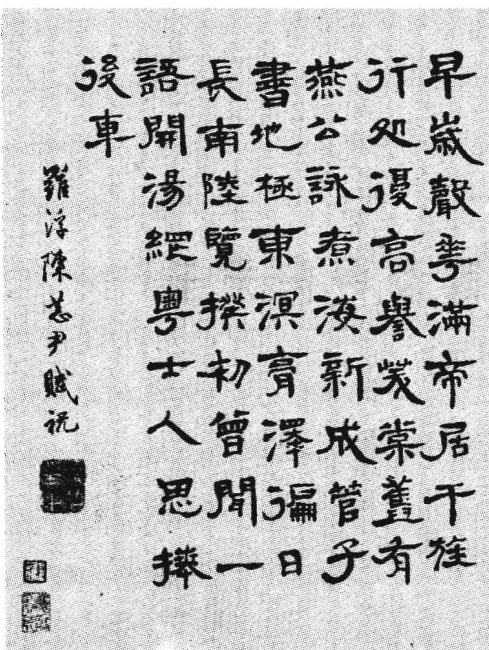 早歲聲華滿帝居干旌
行処復高譽茇棠舊有
燕公詠煮海新成管子
書地極東溟膏澤徧日
長南陸覽揆初曾聞一
語開湯網粵士人思擁
後車
羅浮陳恭尹賦祝